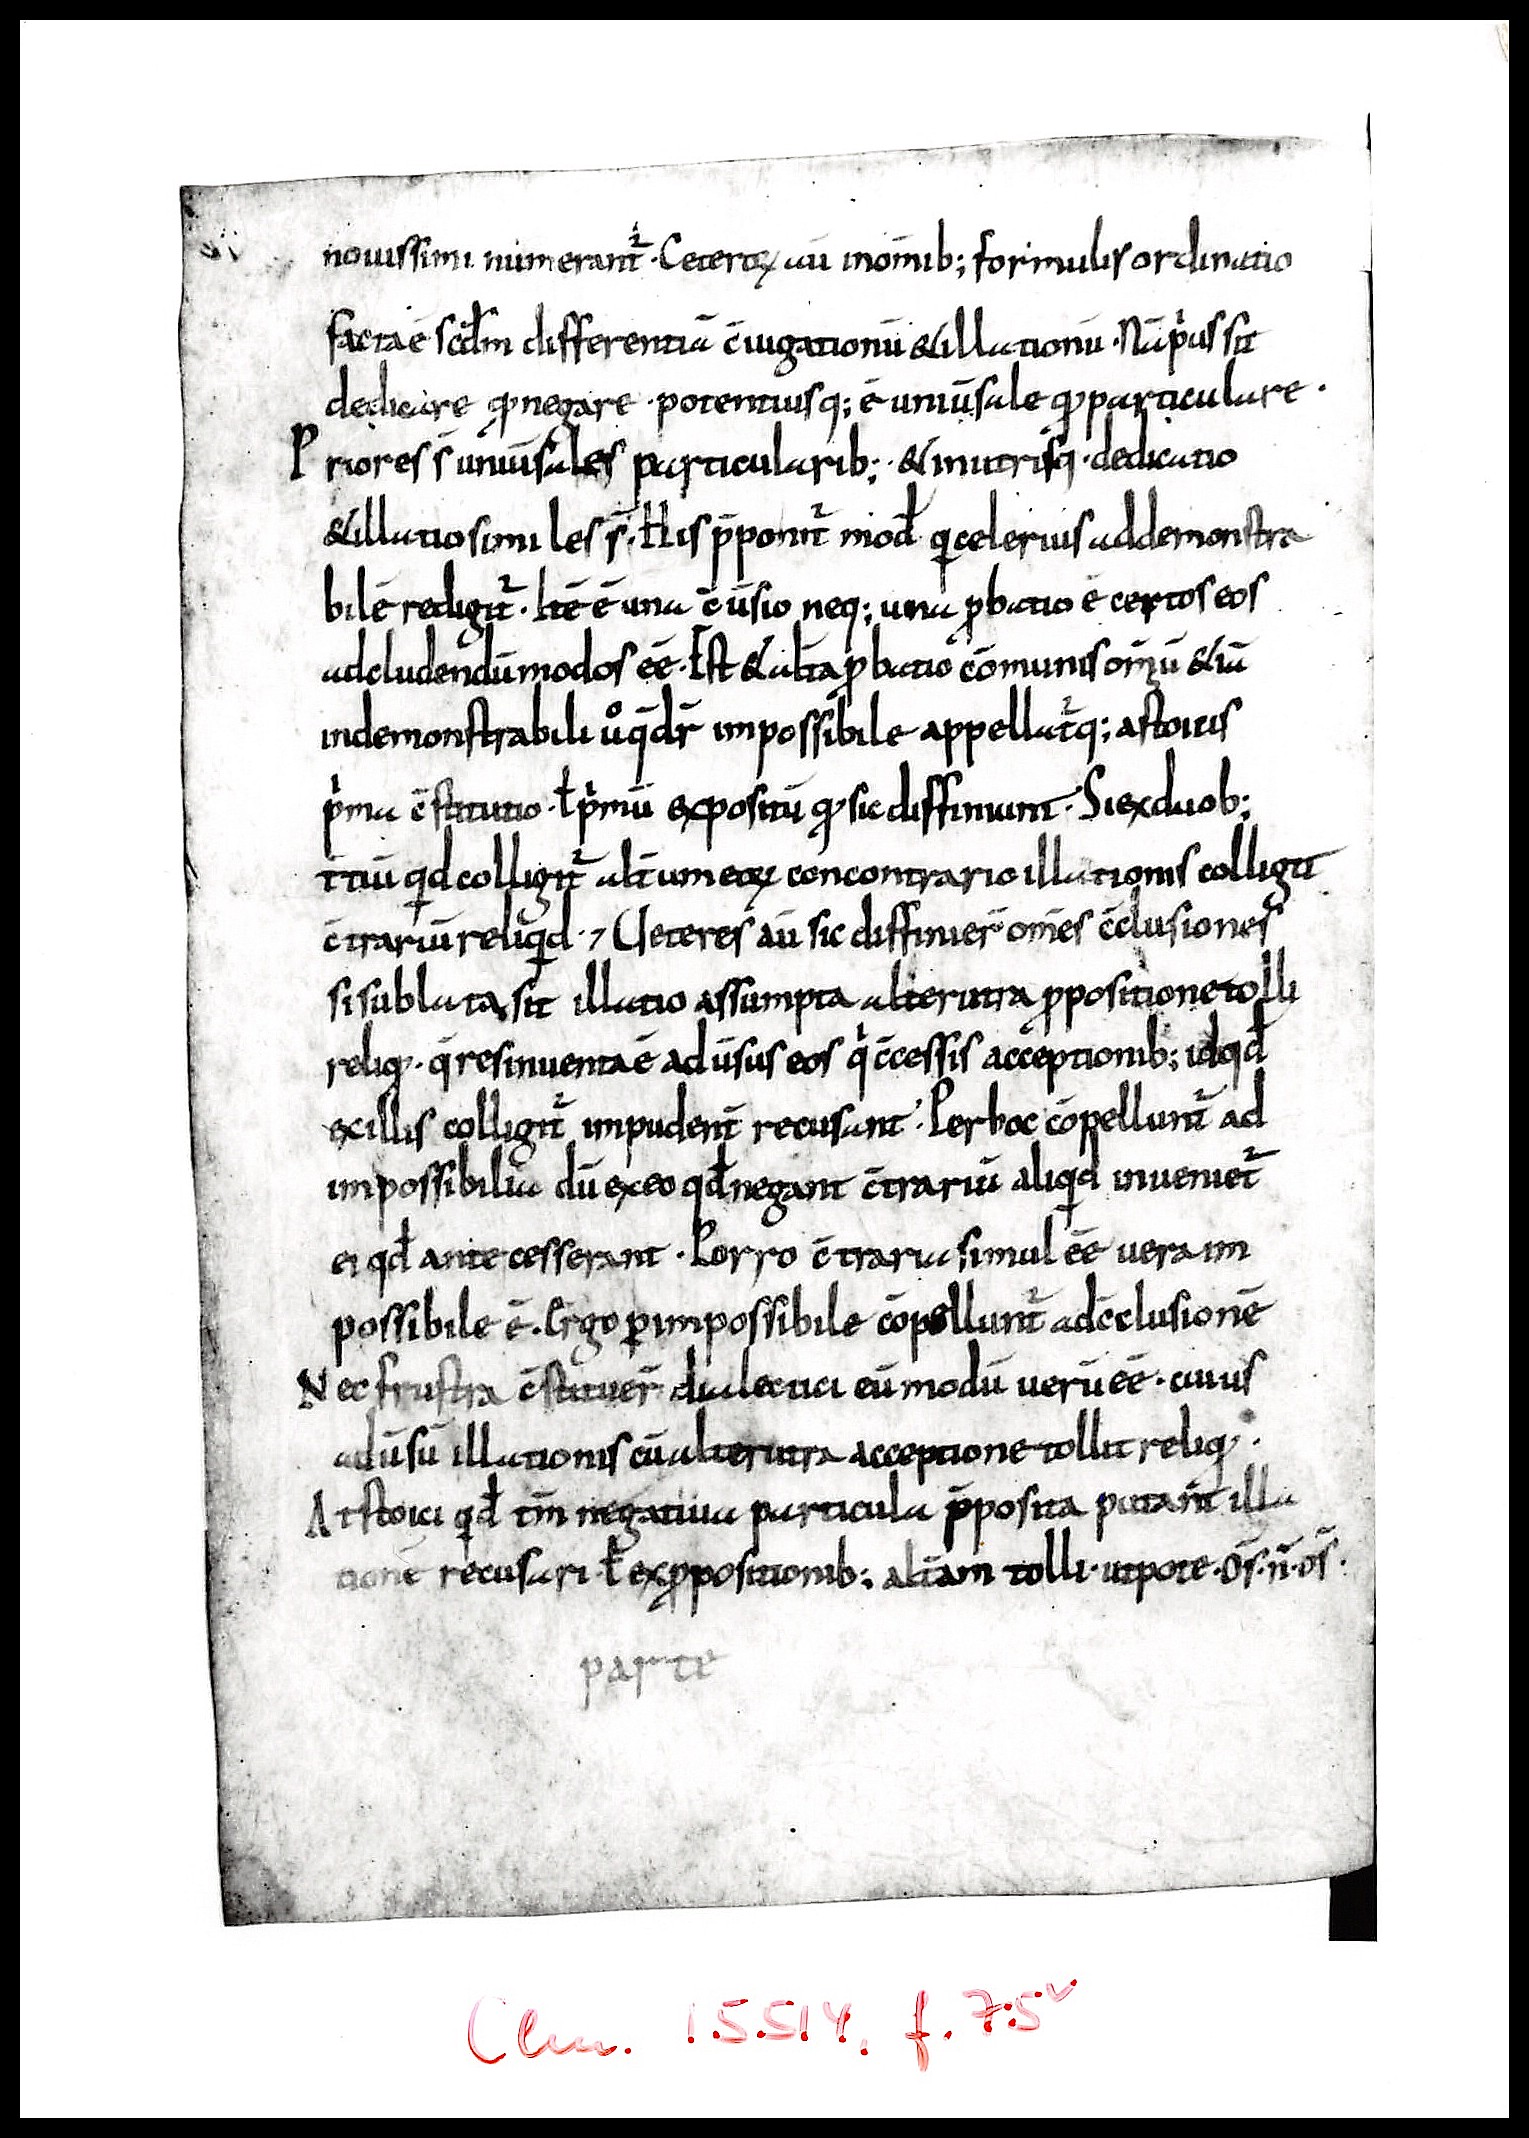 nouissimi numerant̄ · Ceteroꝝ aū inom̄ib; formulis ordinatio
facta ē scđm differentiā c̄iugationū & illationū · Nā p̍us sit
dedicare qͣ negare · potentiusq; ē uniūsale qͣ particulare ·
Priores s̄ uniūsales particularib; · & inutrisq · dedicatio
& illatio similes s̄ · His p̄ponit̄ mođ q celerius addemonstra
bilē redigit̄ · Itē ē una c̄ūsio neq; una ꝓbatio ē certos eos
adcludendū modos ēē · Est & alt̄a ꝓbatio cōmunis om̄iū & iā
indemonstrabiliū q̄ dr̄ impossibile appellat̄q; astoicis
p̍ma c̄stitutio · ł p̍mū expositū qͣ sic diffiniunt · Si exduob;
t̄tiū qd colligit̄ alt̄um eoꝝ concontrario illationis colligit
c̄trariū reliqd · Ueteres aū sic diffinier̄ om̄es c̄clusiones
si sublata sit illatio assumpta alterutra ꝓpositione tolli
reliq · q̄ res inuenta ē adūsus eos q̍ c̄cessis acceptionib; id qđ
exillis colligit̄ impudent̄ recusant · Per hoc cōpellunt̄ ad
impossibilia dū exeo qđ negant c̄trariū aliqd inueniet̄
ei qđ ante cesserant · Porro c̄traria simul ēē uera im
possibile ē · Ergo ꝑimpossibile cōpellunt̄ adc̄clusionē
Nec frustra c̄stituer̄ dialectici eū modū uerū ēē · cuius
adūsū illationis cū alterutra acceptione tollit reliq ·
At stoici qđ tm̄ negatiua particula p̄posita putant̄ illa
tionē recusari · ł exꝓpositionib; alt̄am tolli · utpote · om̄s · n̄ · om̄s ·
parte
Clm. 15514, f. 75ᵛ